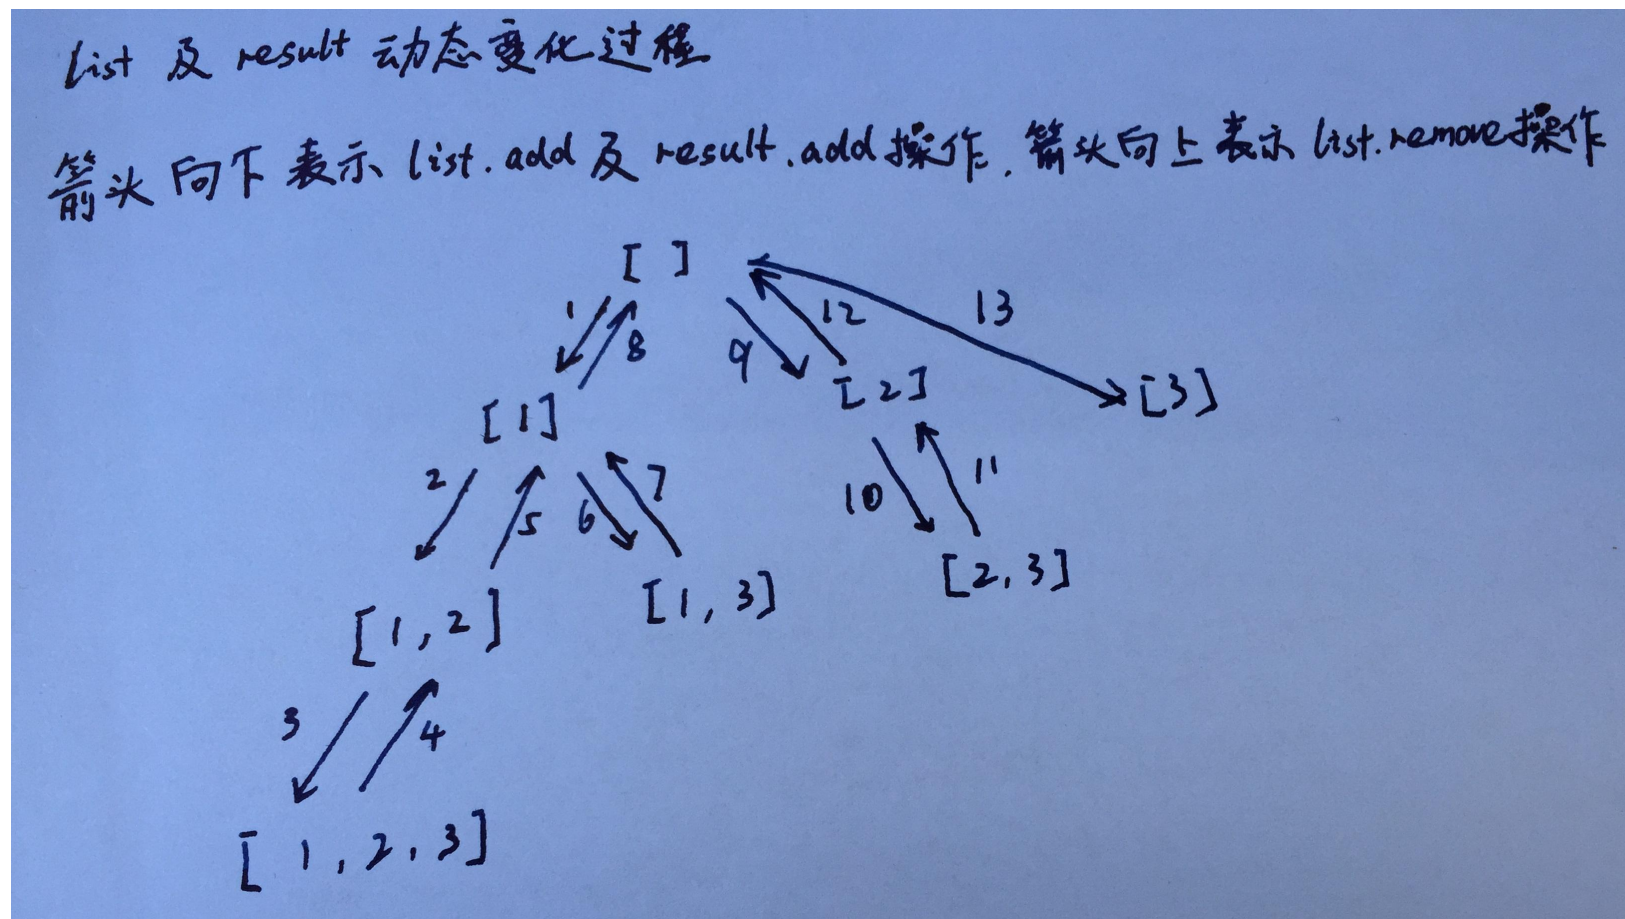 list 及 result 动态变化过程
箭头向下表示 list.add 及 result.add操作. 箭头向上表示 list.remove操作
[ ]
1 8 9 12 13
[1] [2] [3]
2 5 6 7 10 11
[1,2] [1,3] [2,3]
3 4
[1,2,3]